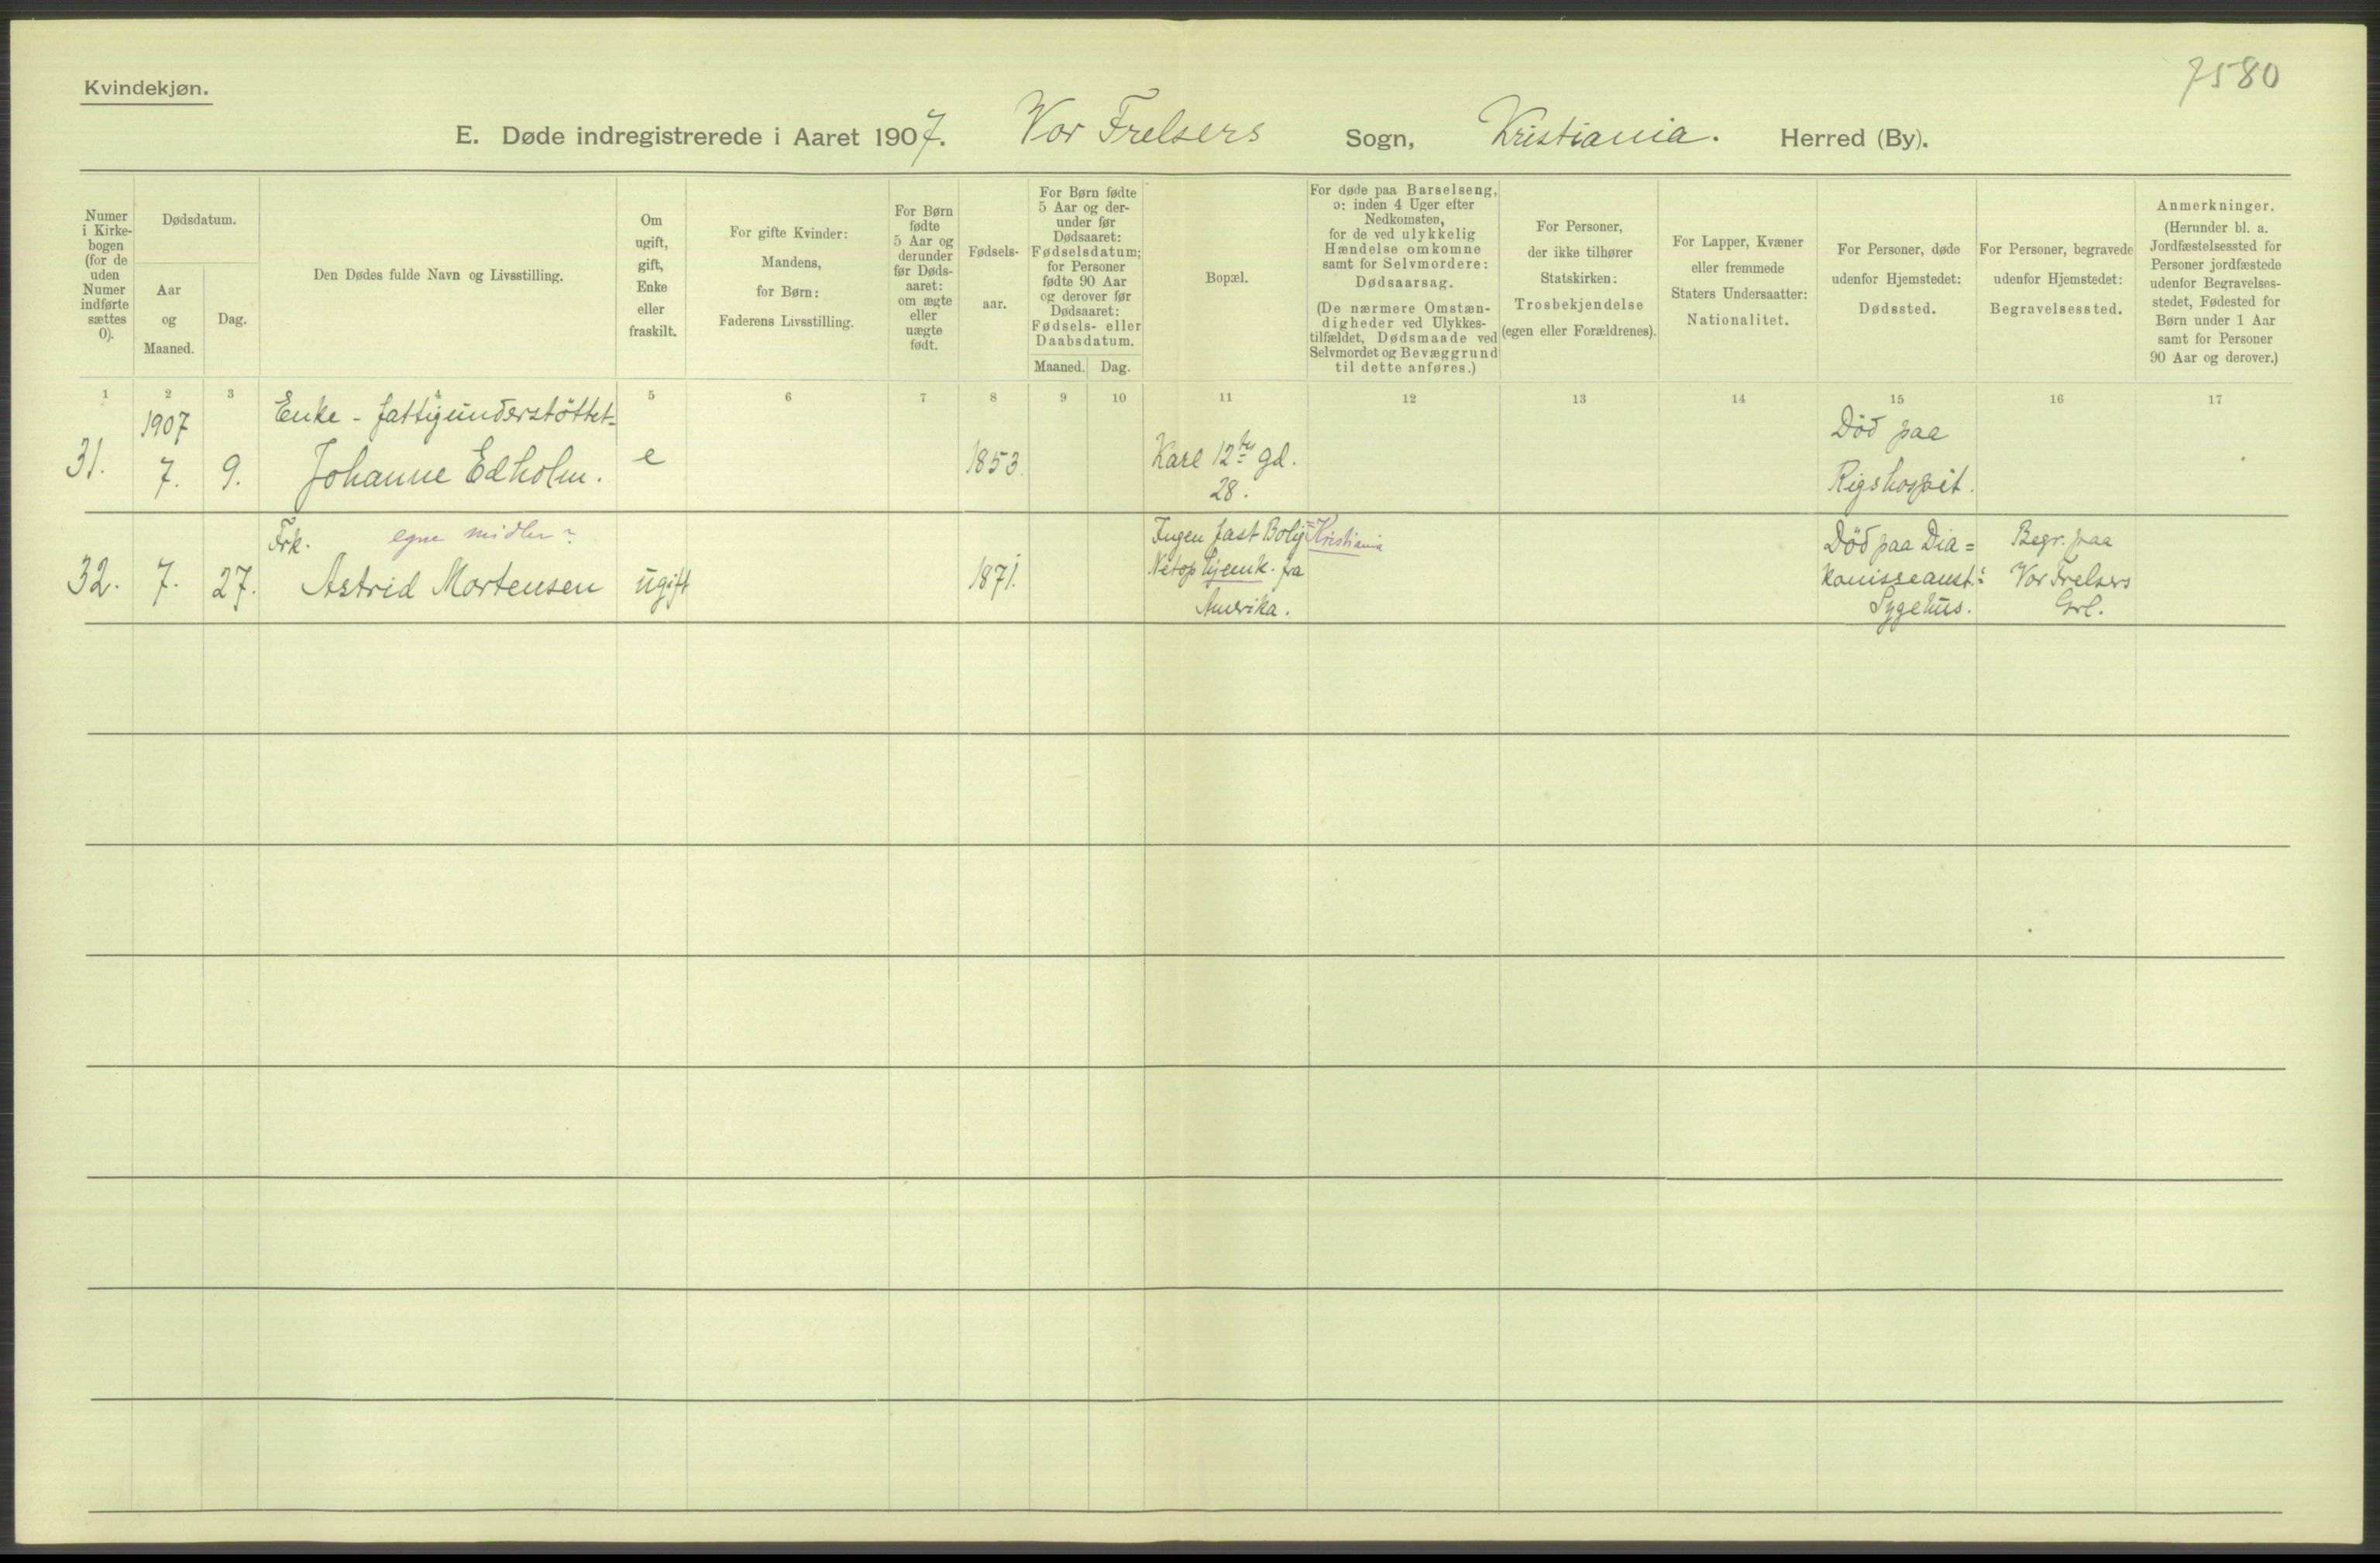 7580
Kvindekjøn.
E. Døde indregistrerede i Aaret 1907. Vor Frelsers Sogn, Kristiania. Herred (By).
Numer
i Kirke-
bogen
(for de
uden
Numer
indførte
sættes
0).
Dødsdatum.
Aar
og
Maaned.
Dag.
Den Dødes fulde Navn og Livsstilling.
Om
ugift,
gift,
Enke
eller
fraskilt.
For gifte Kvinder:
Mandens,
for Børn:
Faderens Livsstilling.
For Børn
fødte
5 Aar og
derunder
før Døds-
aaret:
om ægte
eller
uægte
født.
Fødsels-
aar.
For Børn fødte
5 Aar og der-
under før
Dødsaaret:
Fødselsdatum;
for Personer
fødte 90 Aar
og derover før
Dødsaaret:
Fødsels- eller
Daabsdatum.
Maaned.
Dag.
Bopæl.
For døde paa Barselseng,
ɔ: inden 4 Uger efter
Nedkomsten,
for de ved ulykkelig
Hændelse omkomne
samt for Selvmordere:
Dødsaarsag.
(De nærmere Omstæn-
digheder ved Ulykkes-
tilfældet, Dødsmaade ved
Selvmordet og Bevæggrund
til dette anføres.)
For Personer,
der ikke tilhører
Statskirken:
Trosbekjendelse
(egen eller Forældrenes).
For Lapper, Kvæner
eller fremmede
Staters Undersaatter:
Nationalitet.
For Personer, døde
udenfor Hjemstedet:
Dødssted.
For Personer, begravede
udenfor Hjemstedet:
Begravelsessted.
Anmerkninger.
(Herunder bl. a.
Jordfæstelsessted for
Personer jordfæstede
udenfor Begravelses-
stedet, Fødested for
Børn under 1 Aar
samt for Personer
90 Aar og derover.)
1 2 3 4 5 6 7 8 9 10 11 12 13 14 15 16 17
31.
1907
7.
9.
Enke - fattigunderstöttet
Johanne Edholm.
e
1853.
Karl 12tes gd.
28.
Död paa
Rigshospit.
32.
7.
27.
Frk. egne midler?
Astrid Mortensen
ugift
1871.
Ingen fast Bolig = Kristiania
Netop hjemk. fra
Amerika.
Död paa Dia=
konisseanst.:
Sygehus.
Begr. paa
Vor Frelsers
Grl.